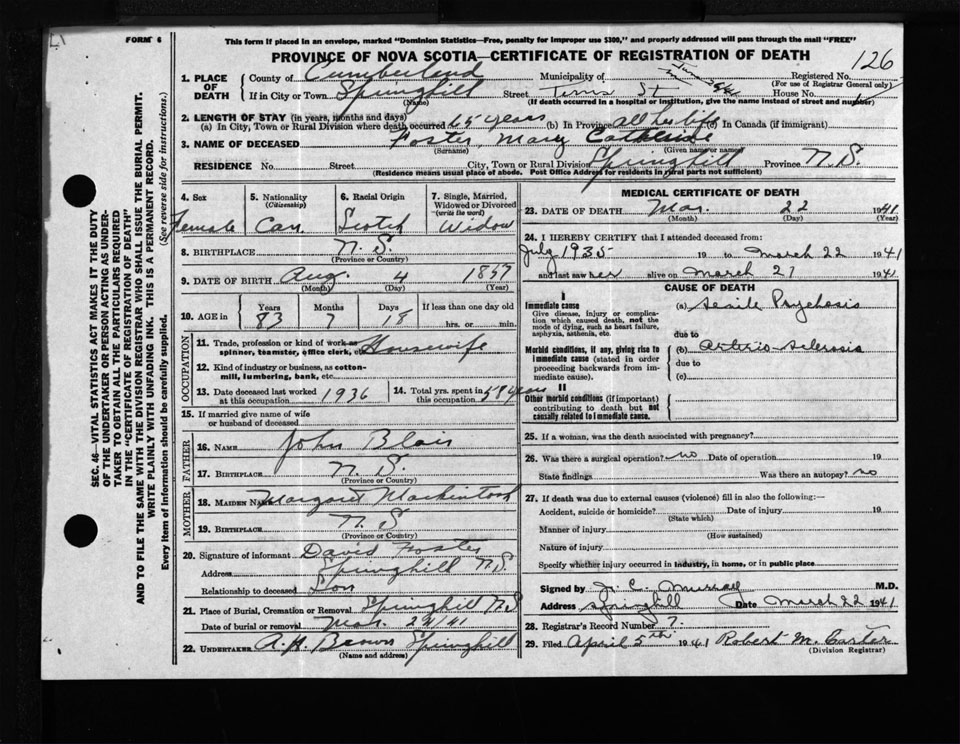 FORM 6
This form if placed in an envelope, marked "Dominion Statistics—Free, penalty for improper use $300," and properly addressed will pass through the mail "FREE"
PROVINCE OF NOVA SCOTIA—CERTIFICATE OF REGISTRATION OF DEATH
126
1. PLACE OF DEATH
County of Cumberland Municipality of Registered No.
(For use of Registrar General only)
If in City or Town Springhill Street St House No.
(Name) (If death occurred in a hospital or institution, give the name instead of street and number)
2. LENGTH OF STAY (in years, months and days)
(a) In City, Town or Rural Division where death occurred 65 years (b) In Province all her life (c) In Canada (if immigrant)
3. NAME OF DECEASED Foster Mary Catherine
(Surname) (Given name or names)
RESIDENCE No. Street City, Town or Rural Division Springhill Province N.S.
(Residence means usual place of abode. Post Office Address for residents in rural parts not sufficient)
4. Sex Female
5. Nationality (Citizenship) Can
6. Racial Origin Scotch
7. Single, Married, Widowed or Divorced (write the word) Widow
8. BIRTHPLACE N.S.
(Province or Country)
9. DATE OF BIRTH Aug. 4 1857
(Month) (Day) (Year)
10. AGE in Years 83 Months 7 Days 18 If less than one day old hrs. or min.
OCCUPATION
11. Trade, profession or kind of work as spinner, teamster, office clerk, etc. Housewife
12. Kind of industry or business, as cotton-mill, lumbering, bank, etc.
13. Date deceased last worked at this occupation 1936
14. Total yrs. spent in this occupation 58 years
15. If married give name of wife or husband of deceased
FATHER
16. NAME John Blair
17. BIRTHPLACE N.S.
(Province or Country)
MOTHER
18. MAIDEN NAME Margaret Mackintosh
19. BIRTHPLACE N.S
(Province or Country)
20. Signature of informant David Foster
Address Springhill N.S.
Relationship to deceased Son
21. Place of Burial, Cremation or Removal Springhill N.S
Date of burial or removal Mar. 24/41
22. UNDERTAKER A.H. Brown Springhill
(Name and address)
MEDICAL CERTIFICATE OF DEATH
23. DATE OF DEATH Mar. 22 1941
(Month) (Day) (Year)
24. I HEREBY CERTIFY that I attended deceased from:
July 1935 19 to March 22 1941
and last saw her alive on March 21 1941
CAUSE OF DEATH
I
Immediate cause (a) Senile Psychosis
Give disease, injury or complication which caused death, not the mode of dying, such as heart failure, asphyxia, asthenia, etc.
due to
Morbid conditions, if any, giving rise to immediate cause (stated in order proceeding backwards from immediate cause).
(b) Arterio-sclerosis
due to
(c)
II
Other morbid conditions (if important) contributing to death but not causally related to immediate cause.
25. If a woman, was the death associated with pregnancy?
26. Was there a surgical operation? no Date of operation 19
State findings Was there an autopsy? no
27. If death was due to external causes (violence) fill in also the following:—
Accident, suicide or homicide? Date of injury 19
(State which)
Manner of injury
(How sustained)
Nature of injury
Specify whether injury occurred in industry, in home, or in public place
Signed by J. C. Murray M.D.
Address Springhill Date March 22 1941
28. Registrar's Record Number 7.
29. Filed April 5th 1941 Robert M. Carter
(Division Registrar)
SEC. 46—VITAL STATISTICS ACT MAKES IT THE DUTY
OF THE UNDERTAKER OR PERSON ACTING AS UNDER-
TAKER TO OBTAIN ALL THE PARTICULARS REQUIRED
IN THE "CERTIFICATE OF REGISTRATION OF DEATH"
AND TO FILE THE SAME WITH THE DIVISION REGISTRAR WHO SHALL ISSUE THE BURIAL PERMIT.
WRITE PLAINLY WITH UNFADING INK. THIS IS A PERMANENT RECORD.
Every item of Information should be carefully supplied. (See reverse side for instructions.)